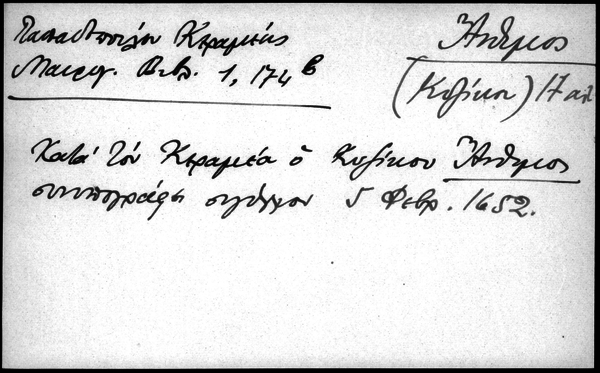 Παπαδοπούλου Κεραμεύς
Μαυρογ. Βιβλ. 1, 174 β
Ἄνθιμος
(Κυζίκου) 17 αἰ.
Κατὰ τὸν Κεραμέα ὁ Κυζίκου Ἄνθιμος
συνυπογράφει σιγίλλιον 5 Φεβρ. 1652.